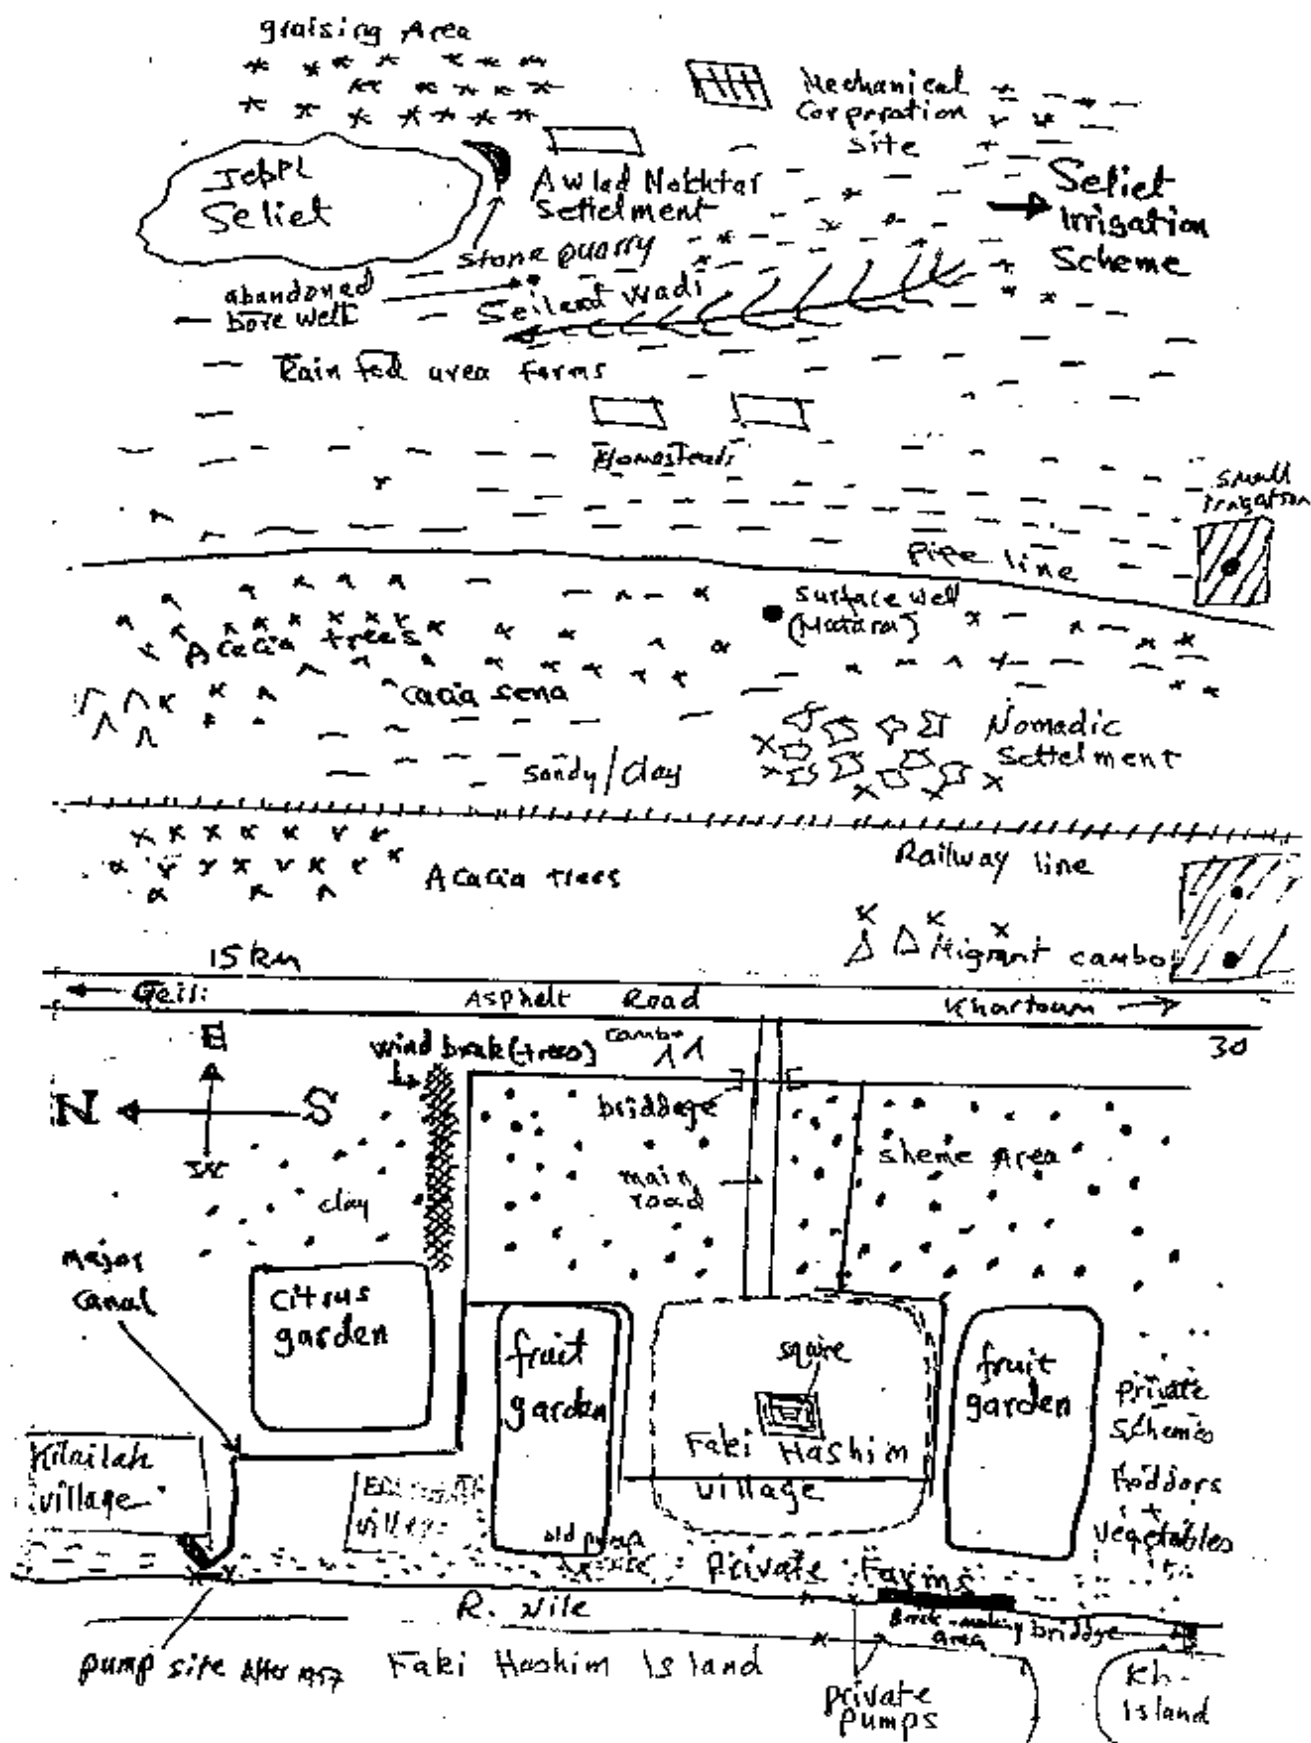 graising Area
Mechanical
Corporation
site
Jebel
Seliet
Awlad Mokhtar
Settelment
Seliet
Irrigation
Scheme
stone quarry
abandoned
bore well
Seileat wadi
Rain fed area farms
Homesteads
small
irrigation
Pipe line
surface well
(Matara)
Acacia trees
cacia sena
Nomadic
Settelment
sandy/clay
Railway line
Acacia trees
Migrant cambo
15 km
Geili
Asphelt Road
Khartoum
30
E
N S
W
wind brak (trees)
cambo
briddege
main
road
sheme Area
clay
major
canal
citrus
garden
fruit
garden
sqaire
fruit
garden
Faki Hashim
village
private
schemes
Foddors
+
vegetables
Kilailah
village
village
old pump
site
private Farms
R. Nile
Brick-making
area
briddge
pump site After 1957
Faki Hashim Island
private
pumps
Kh-
Island